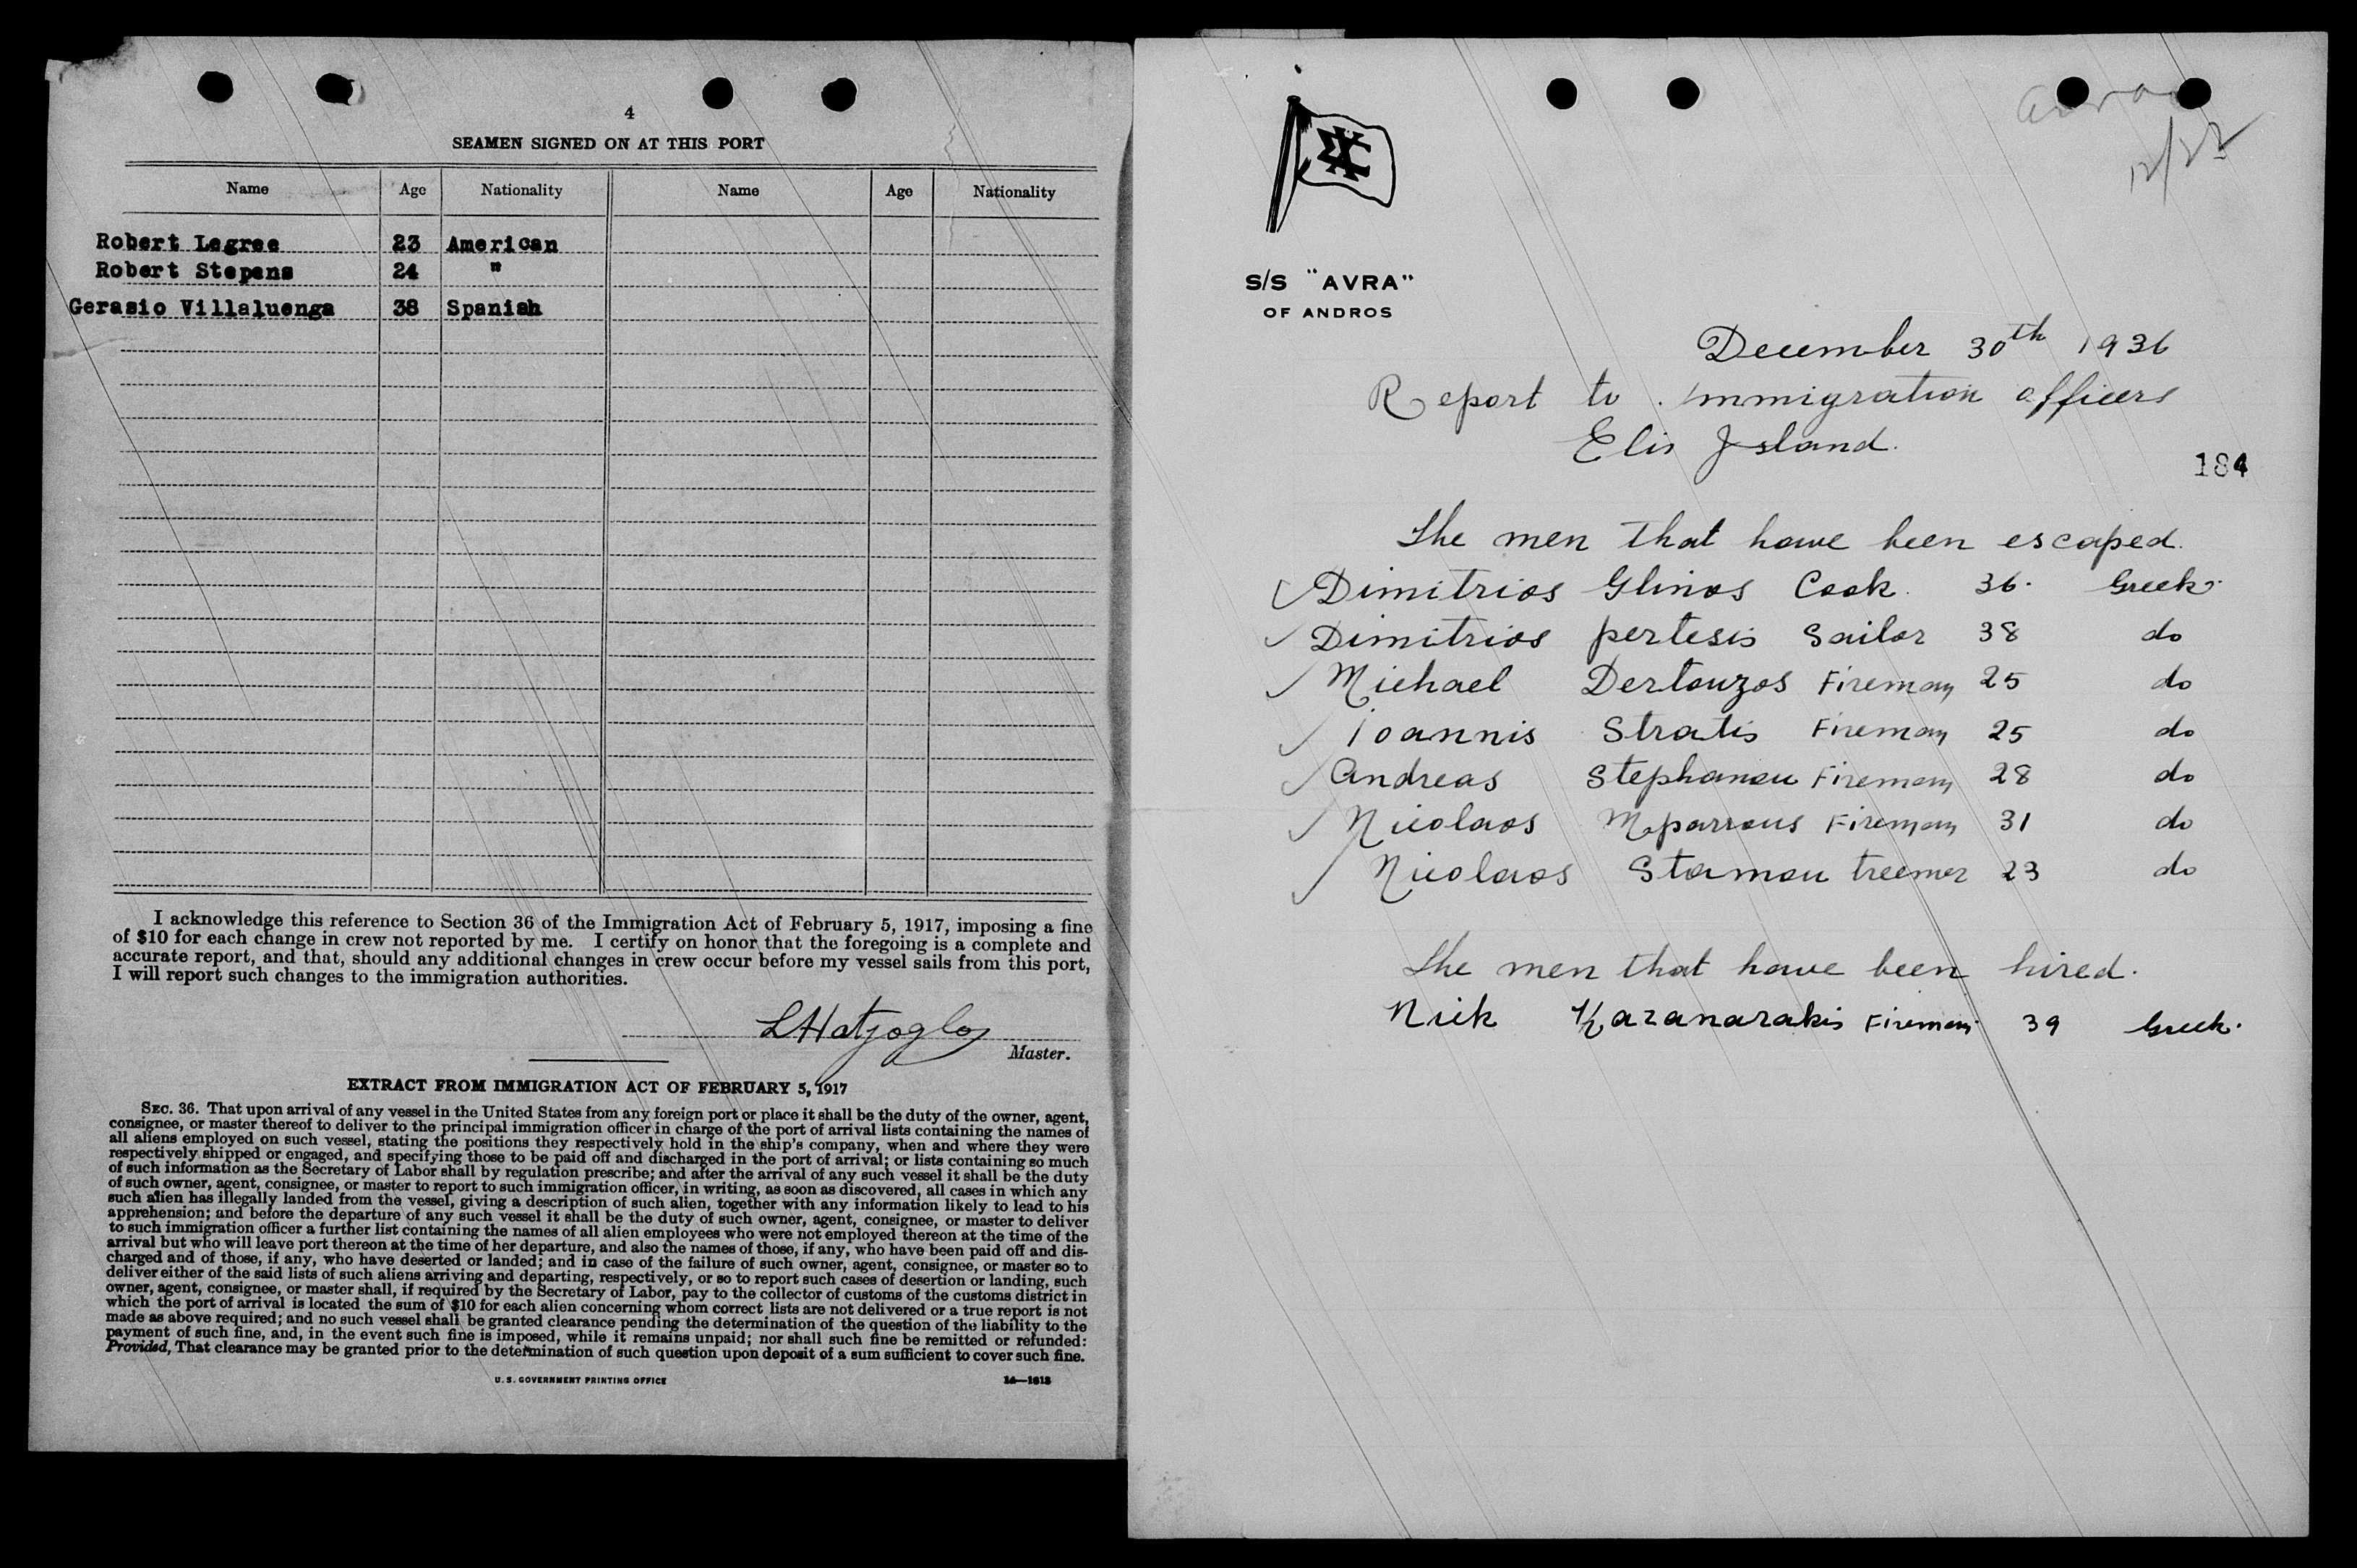 4
SEAMEN SIGNED ON AT THIS PORT
Name Age Nationality Name Age Nationality
Robert Legree 23 American
Robert Stepens 24 "
Gerasio Villaluenga 38 Spanish
I acknowledge this reference to Section 36 of the Immigration Act of February 5, 1917, imposing a fine
of $10 for each change in crew not reported by me. I certify on honor that the foregoing is a complete and
accurate report, and that, should any additional changes in crew occur before my vessel sails from this port,
I will report such changes to the immigration authorities.
LHatzoglou
Master.
EXTRACT FROM IMMIGRATION ACT OF FEBRUARY 5, 1917
SEC. 36. That upon arrival of any vessel in the United States from any foreign port or place it shall be the duty of the owner, agent,
consignee, or master thereof to deliver to the principal immigration officer in charge of the port of arrival lists containing the names of
all aliens employed on such vessel, stating the positions they respectively hold in the ship's company, when and where they were
respectively shipped or engaged, and specifying those to be paid off and discharged in the port of arrival; or lists containing so much
of such information as the Secretary of Labor shall by regulation prescribe; and after the arrival of any such vessel it shall be the duty
of such owner, agent, consignee, or master to report to such immigration officer, in writing, as soon as discovered, all cases in which any
such alien has illegally landed from the vessel, giving a description of such alien, together with any information likely to lead to his
apprehension; and before the departure of any such vessel it shall be the duty of such owner, agent, consignee, or master to deliver
to such immigration officer a further list containing the names of all alien employees who were not employed thereon at the time of the
arrival but who will leave port thereon at the time of her departure, and also the names of those, if any, who have been paid off and dis-
charged and of those, if any, who have deserted or landed; and in case of the failure of such owner, agent, consignee, or master so to
deliver either of the said lists of such aliens arriving and departing, respectively, or so to report such cases of desertion or landing, such
owner, agent, consignee, or master shall, if required by the Secretary of Labor, pay to the collector of customs of the customs district in
which the port of arrival is located the sum of $10 for each alien concerning whom correct lists are not delivered or a true report is not
made as above required; and no such vessel shall be granted clearance pending the determination of the question of the liability to the
payment of such fine, and, in the event such fine is imposed, while it remains unpaid; nor shall such fine be remitted or refunded:
Provided, That clearance may be granted prior to the determination of such question upon deposit of a sum sufficient to cover such fine.
U. S. GOVERNMENT PRINTING OFFICE 14—1618
S/S "AVRA"
OF ANDROS
December 30th 1936
Report to immigration officers
Elis Island.
184
The men that have been escaped.
Dimitrios Glinos Cook. 36. Greek.
Dimitrios pertesis Sailor 38 do
Michael Dertouzos Fireman 25 do
ioannis Stratis Fireman 25 do
Andreas Stephanou Fireman 28 do
Nicolaos Mparrous Fireman 31 do
Nicolaos Stamou treemer 23 do
The men that have been hired.
Nick Kazanarakis Fireman 39 Greek.